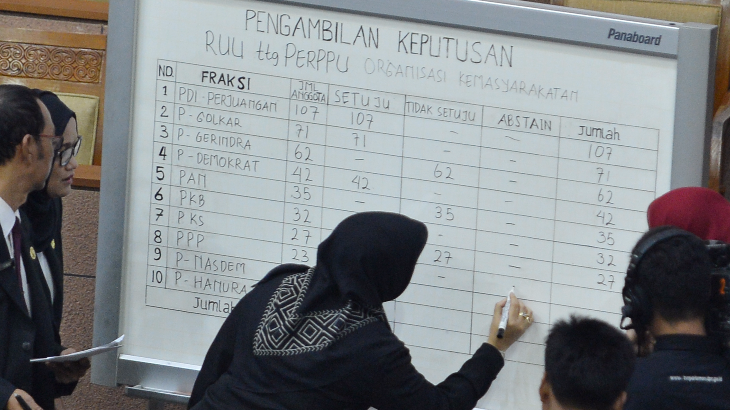 Panaboard
PENGAMBILAN KEPUTUSAN
RUU ttg PERPPU ORGANISASI KEMASYARAKATAN
NO. FRAKSI JML ANGGOTA SETUJU TIDAK SETUJU ABSTAIN Jumlah
1 PDI-PERJUANGAN 107 107 - - 107
2 P-GOLKAR 71 71 - - 71
3 P-GERINDRA 62 - 62 - 62
4 P-DEMOKRAT 42 42 - - 42
5 PAN 35 - 35 - 35
6 PKB 32 - - 32
7 PKS 27 27 - 27
8 PPP 23
9 P-NASDEM
10 P-HANURA
Jumlah